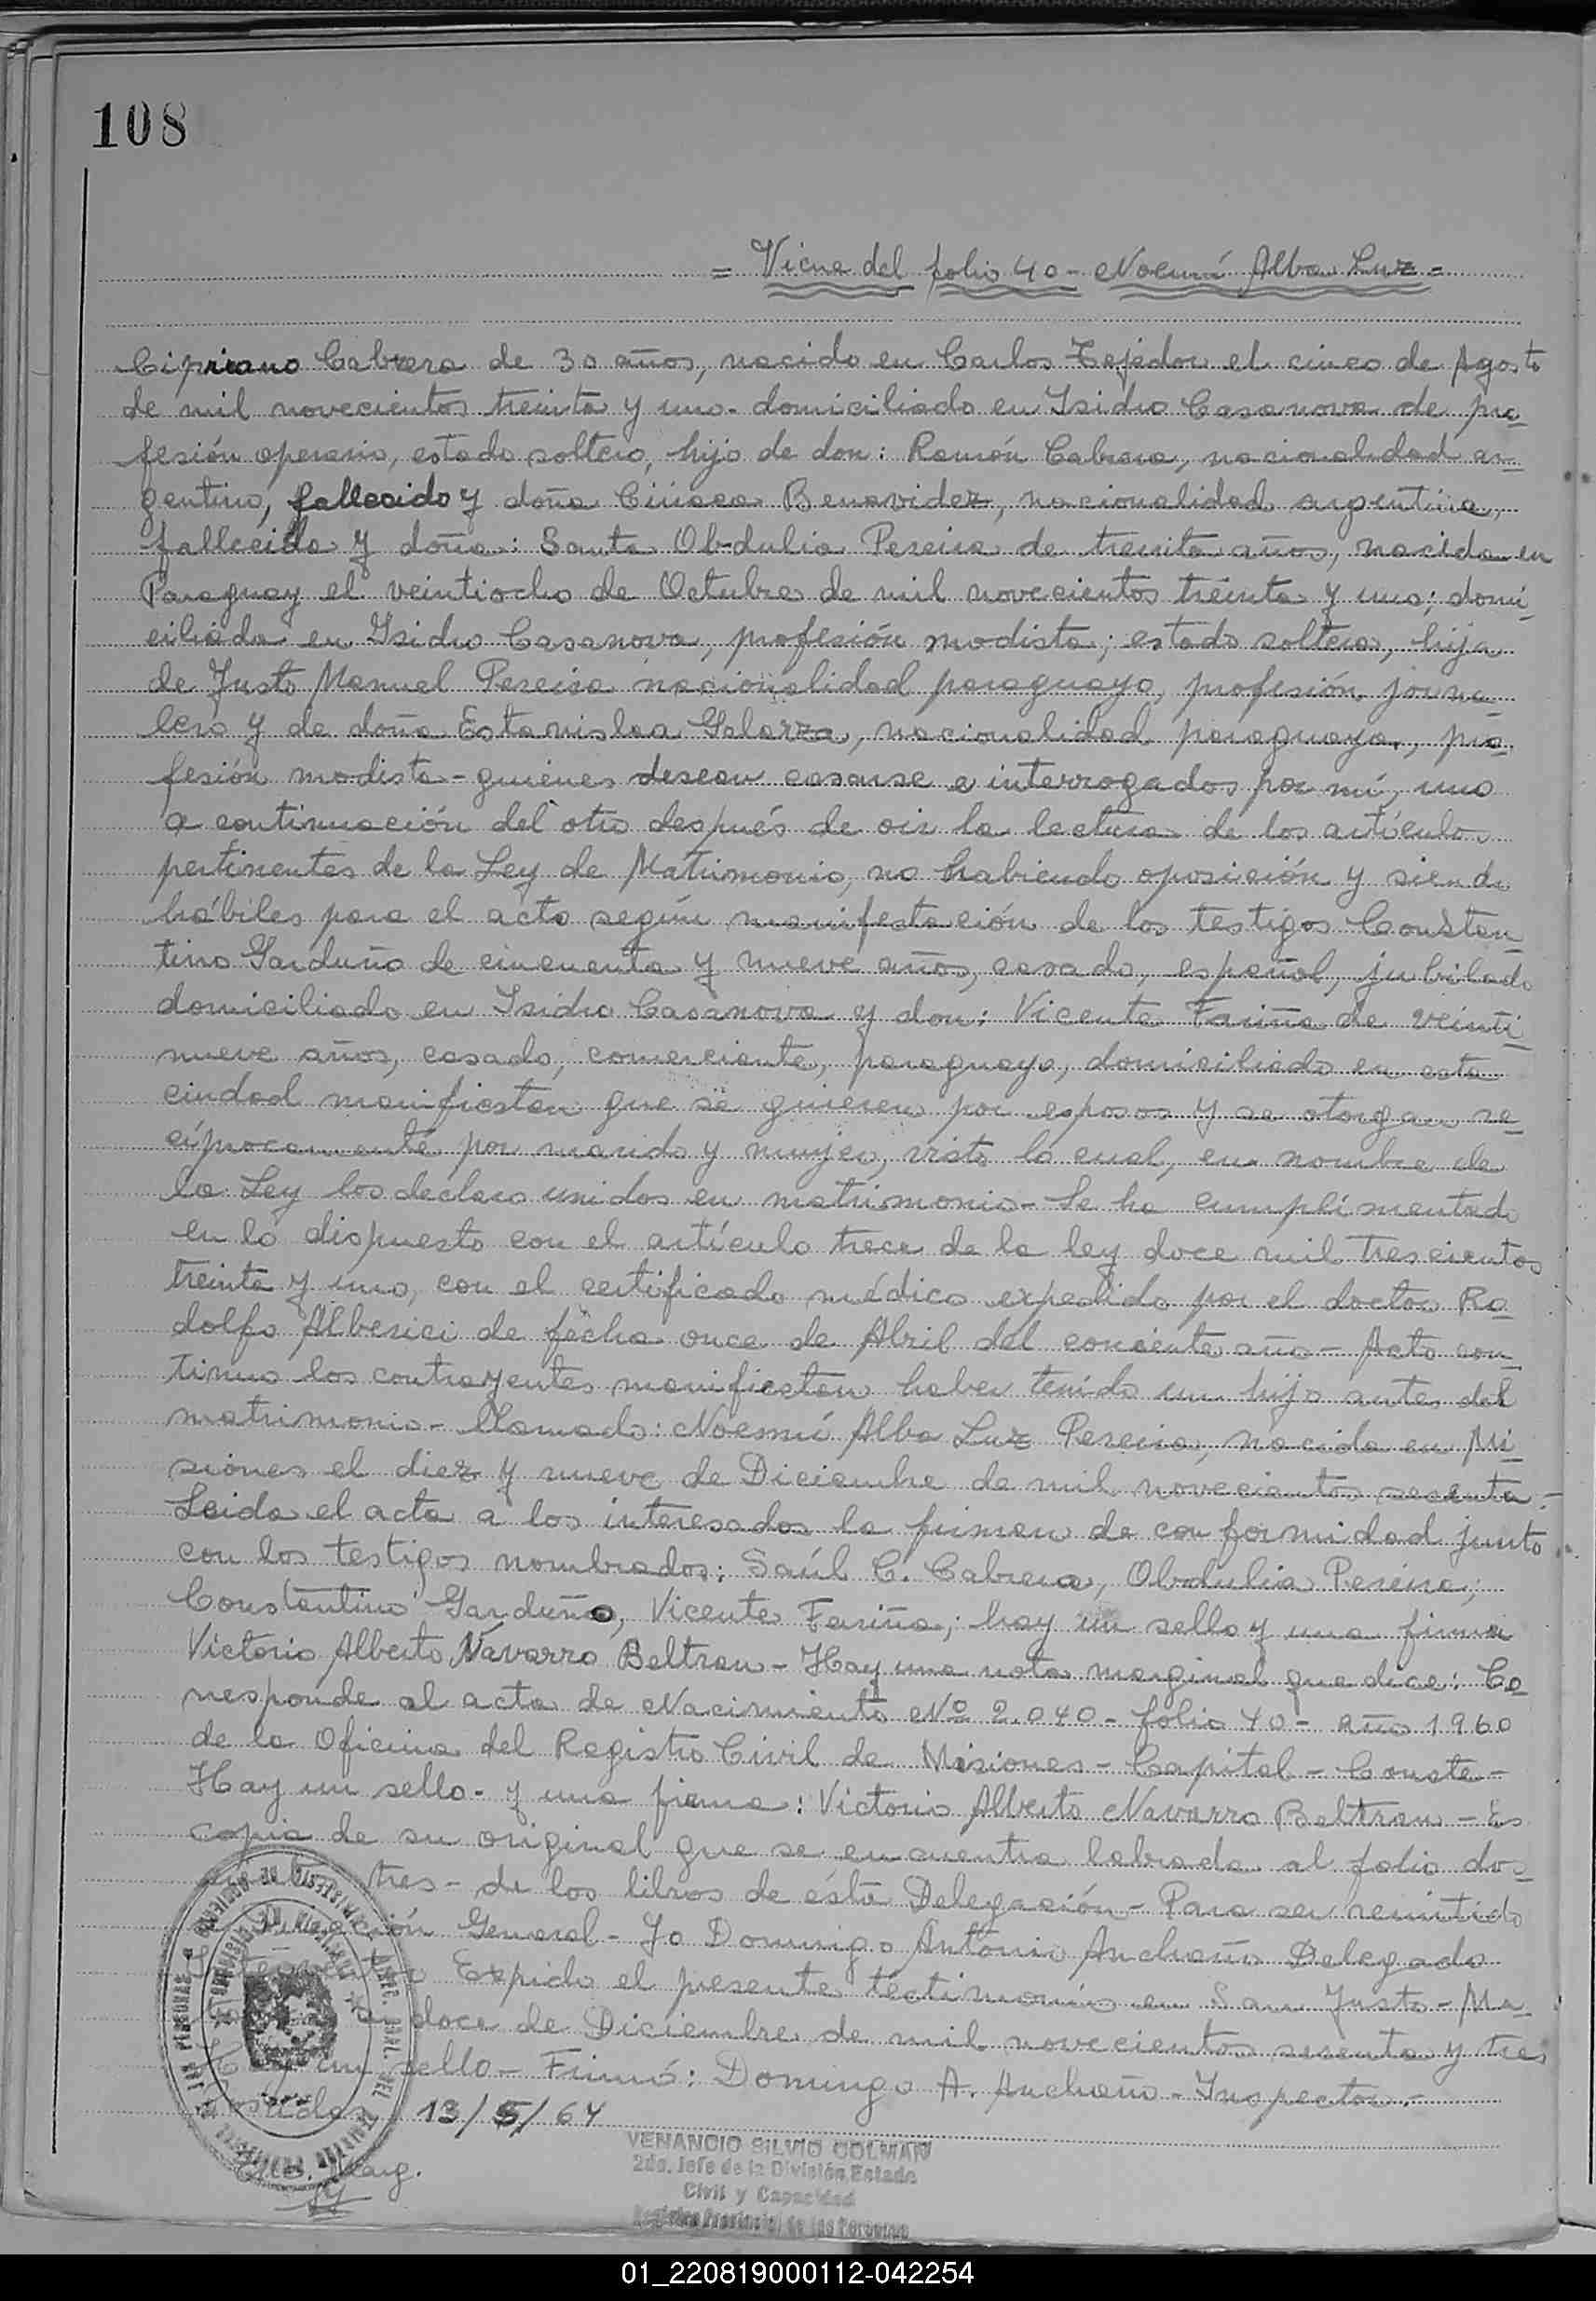 108
= Viene del folio 40 - Noemí Alba Luz =
Cipriano Cabrera de 30 años, nacido en Carlos Tejedor el cinco de Agosto
de mil novecientos treinta y uno - domiciliado en Isidro Casanova de pro-
fesión operario, estado soltero, hijo de don: Ramón Cabrera, nacionalidad ar-
gentino, fallecido y doña Ciriaca Benavidez, nacionalidad argentina,
fallecida y doña: Santa Obdulia Pereira de treinta años, nacida en
Paraguay el veintiocho de Octubre de mil novecientos treinta y uno; domi-
ciliada en Isidro Casanova, profesión modista; estado soltera, hija
de Justo Manuel Pereira nacionalidad paraguaya, profesión jorna-
lero y de doña Estanislaa Galarza, nacionalidad paraguaya, pro-
fesión modista - quienes desean casarse e interrogados por mí, uno
a continuación del otro después de oir la lectura de los artículos
pertinentes de la Ley de Matrimonio, no habiendo oposición y siendo
hábiles para el acto según manifestación de los testigos Constan-
tino Garduño de cincuenta y nueve años, casado, español, jubilado
domiciliado en Isidro Casanova y don: Vicente Fariña de veinti-
nueve años, casado, comerciante, paraguayo, domiciliado en esta
ciudad manifiestan que se quieren por esposos y se otorgan re-
ciprocamente por marido y mujer, visto lo cual, en nombre de
la Ley los declaro unidos en matrimonio - Se ha cumplimentado
en lo dispuesto con el artículo trece de la ley doce mil trescientos
treinta y uno, con el certificado médico expedido por el doctor Ro-
dolfo Alberici de fecha once de Abril del corriente año - Acto con-
tinuo los contrayentes manifiestan haber tenido un hijo antes del
matrimonio - llamado: Noemí Alba Luz Pereira, nacida en Mi-
siones el diez y nueve de Diciembre de mil novecientos sesenta -
Leida el acta a los interesados la firman de conformidad junto
con los testigos nombrados: Saúl C. Cabrera, Obdulia Pereira;
Constantino Garduño, Vicente Fariña; hay un sello y una firma
Victorio Alberto Navarro Beltran - Hay una nota marginal que dice: Co-
rresponde al acta de Nacimiento Nº 2.040 - folio 40 - año 1960
de la Oficina del Registro Civil de Misiones - Capital - Conste -
Hay un sello - y una firma: Victorio Alberto Navarro Beltran - Es
copia de su original que se encuentra labrada al folio dos-
tres - de los libros de ésta Delegación - Para ser remitido
Dirección General - Yo Domingo Antonio Anchaño Delegado
Expido el presente testimonio en San Justo - Ma-
doce de Diciembre de mil novecientos sesenta y tres
Hay un sello - Firmó: Domingo A. Anchaño - Inspector -
Posadas, 13/5/64
VENANCIO SILVIO COLMAN
2do. Jefe de la División Estado
Civil y Capacidad
Registro Provincial de las Personas
01_220819000112-042254